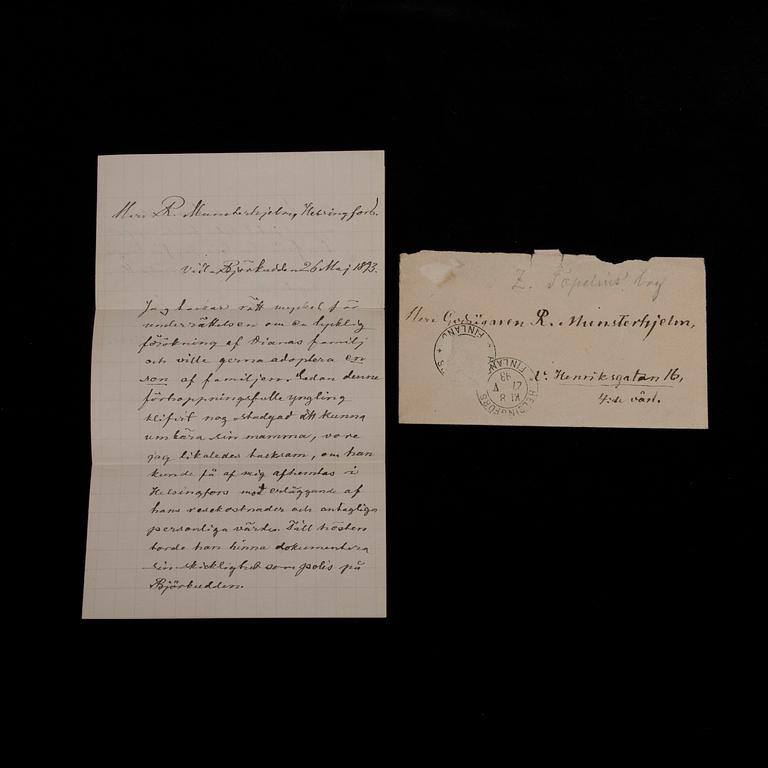 Herr R. Munsterhjelm, Helsingfors.
vid Björkudden 26 Maj 1893.
Jag tackar rätt mycket för
underrättelsen om en lycklig
förökning af Dianas familj
och ville gerna adoptera en
son af familjen. Sedan denne
förhoppningsfulle yngling
blifvit nog stadgad att kunna
umbära sin mamma, vore
jag likaledes tacksam, om han
kunde få af mig afhemtas i
Helsingfors mot erläggande af
hans resekostnader och antagliga
personliga värde. Till hösten
torde han hinna dokumentera
sin skicklighet som polis på
Björkudden.
Z. Topelius' brev
Herr Godsägaren R. Munsterhjelm,
V. Henriksgatan 16,
4:de vån.
FINLAND
HELSINGFORS
KL 8
27 V
93
FINLAND